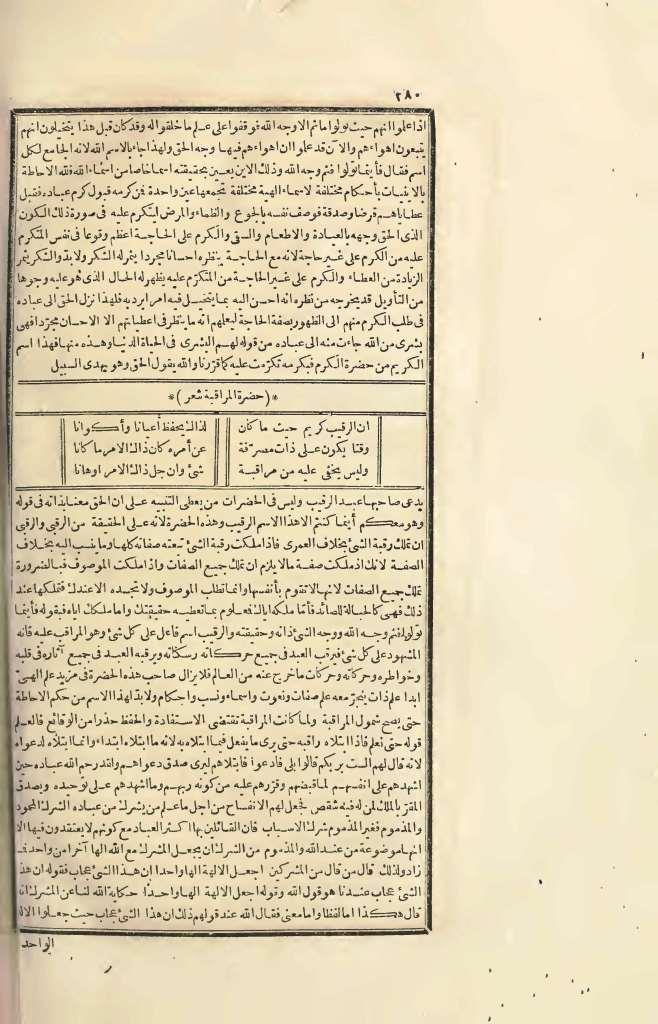 ٢٨٠
اذا علموا انهم حيث تولوا ما ثم الا وجه الله فوقفوا على علم ما خلقوا له وقد كان قبل هذا يتخيلون انهم
يتبعون اهواءهم والآن قد علموا ان اهواءهم فيها وجه الحق ولهذا جاء بالاسم الله لانه الجامع لكل
اسم فقال فأينما تولوا فثم وجه الله وذلك الاين يعين بحقيقته اسما خاصا من اسماء الله فلله الاحاطة
بالاينيات بأحكام مختلفة لاسماء الهية مختلفة يجمعها عين واحدة فمن كرمه قبول كرم عباده فقبل
عطاياهم قرضا وصدقة فوصف نفسه بالجوع والظماء والمرض ليتكرم عليه فى صورة ذلك الكون
الذى الحق وجهه بالعيادة والاطعام والسقى والكرم على الحاجة اعظم وقوعا فى نفس المتكرم
عليه من الكرم على غير حاجة لانه مع الحاجة ينظره احسانا مجردا يثمر له الشكر ولا بد والشكر يثمر
الزيادة من العطاء والكرم على غير الحاجة من المتكرم عليه يظهر له الحال الذى هو عليه وجوها
من التأويل قد يخرجه من نظره انه احسن اليه بما يتخيل فيه امر ايرد به فلهذا نزل الحق الى عباده
فى طلب الكرم منهم الى الظهور بصفة الحاجة ليعلهم انه ما ينظر فى اعطياتهم الا الاحسان مجردا فهى
بشرى من الله جاءت منه الى عباده من قوله لهم البشرى فى الحياة الدنيا وهذه منها فهذا اسم
الكريم من حضرة الكرم فبكرمه تكرمت عليه كما قررنا والله يقول الحق وهو يهدى السبيل
*(حضرة المراقبة شعر)*
ان الرقيب كريم حيث ما كان لذاك يحفظ أعيانا وأكوانا
وقتا يكون على ذات مصرّفة عن أمره كان ذاك الامر ما كانا
وليس يخفى عليه من مراقبة شئ وان جل ذاك الامر اوهانا
يدعى صاحبها عبد الرقيب وليس فى الحضرات من يعطى التنبيه على ان الحق معنا بذاته فى قوله
وهو معكم أينما كنتم الا هذا الاسم الرقيب وهذه الحضرة لانه على الحقيقة من الرقبى والرقبى
ان تملك رقبة الشئ بخلاف العمرى فاذا ملكت رقبة الشئ تبعته صفاته كلها وما ينسب اليه بخلاف
الصفة لانك اذ ملكت صفة ما لا يلزم ان تملك جميع الصفات واذا ملكت الموصوف فبالضرورة
تملك جميع الصفات لانها لا تقوم بأنفسها وانما تطلب الموصوف ولا تجده الا عندك فتملكها عند
ذلك فهى كالحبالة للصائد فأما ملكه اياك فمعلوم بما تعطيه حقيقتك واما ملكك اياه فبقوله فأينما
تولوا فثم وجه الله ووجه الشئ ذاته وحقيقته والرقيب اسم فاعل على كل شئ وهو المراقب عليه فانه
المشهود على كل شئ فيرقب العبد فى جميع حركاته وسكناته ويرقبه العبد فى جميع آثاره فى قلبه
وخواطره وحركاته وحركات ما خرج عنه من العالم فلا يزال صاحب هذه الحضرة فى مزيد علم الهىّ
ابدا علم ذات ينجرّ معه علم صفات ونعوت واسماء ونسب واحكام ولا بد لهذا الاسم من حكم الاحاطة
حتى يصح شمول المراقبة ولما كانت المراقبة تقتضى الاستفادة والحفظ حذرا من الوقائع فالعلم
قوله حتى نعلم فاذا ابتلاه راقبه حتى يرى ما يفعل فيما ابتلاه به لانه ما ابتلاه ابتداء وانما ابتلاه لدعواه
لانه قال لهم الست بربكم قالوا بلى فادعوا فابتلاهم ليرى صدق دعواهم ولقد رحم الله عباده حين
اشهدهم على انفسهم لما قبضهم وقررهم عليه من كونه ربهم وما اشهدهم على توحيده وبصدق
المقرّ بالملك لمن له فيه شقص فجعل لهم الانفساح من اجل ما علم من يشرك من عباده الشرك المحمود
والمذموم فغير المذموم شرك الاسباب فان القائلين بها اكثر العباد مع كونهم لا يعتقدون فيها الا
انها موضوعة من عند الله والمذموم من الشرك ان يجعل المشرك مع الله الها آخر من واحد فـ
زاد ولذلك قال من قال من المشركين اجعل الالهة الها واحدا ان هذا الشئ عجاب فقوله ان هذا
الشئ عجاب عندنا هو قول الله وقوله اجعل الالهة الها واحدا حكاية الله لنا عن المشرك انه
قال هكذا اما لفظا واما معنى فقال الله عند قولهم ذلك ان هذا الشئ عجاب حيث جعلوا الاله
الواحد